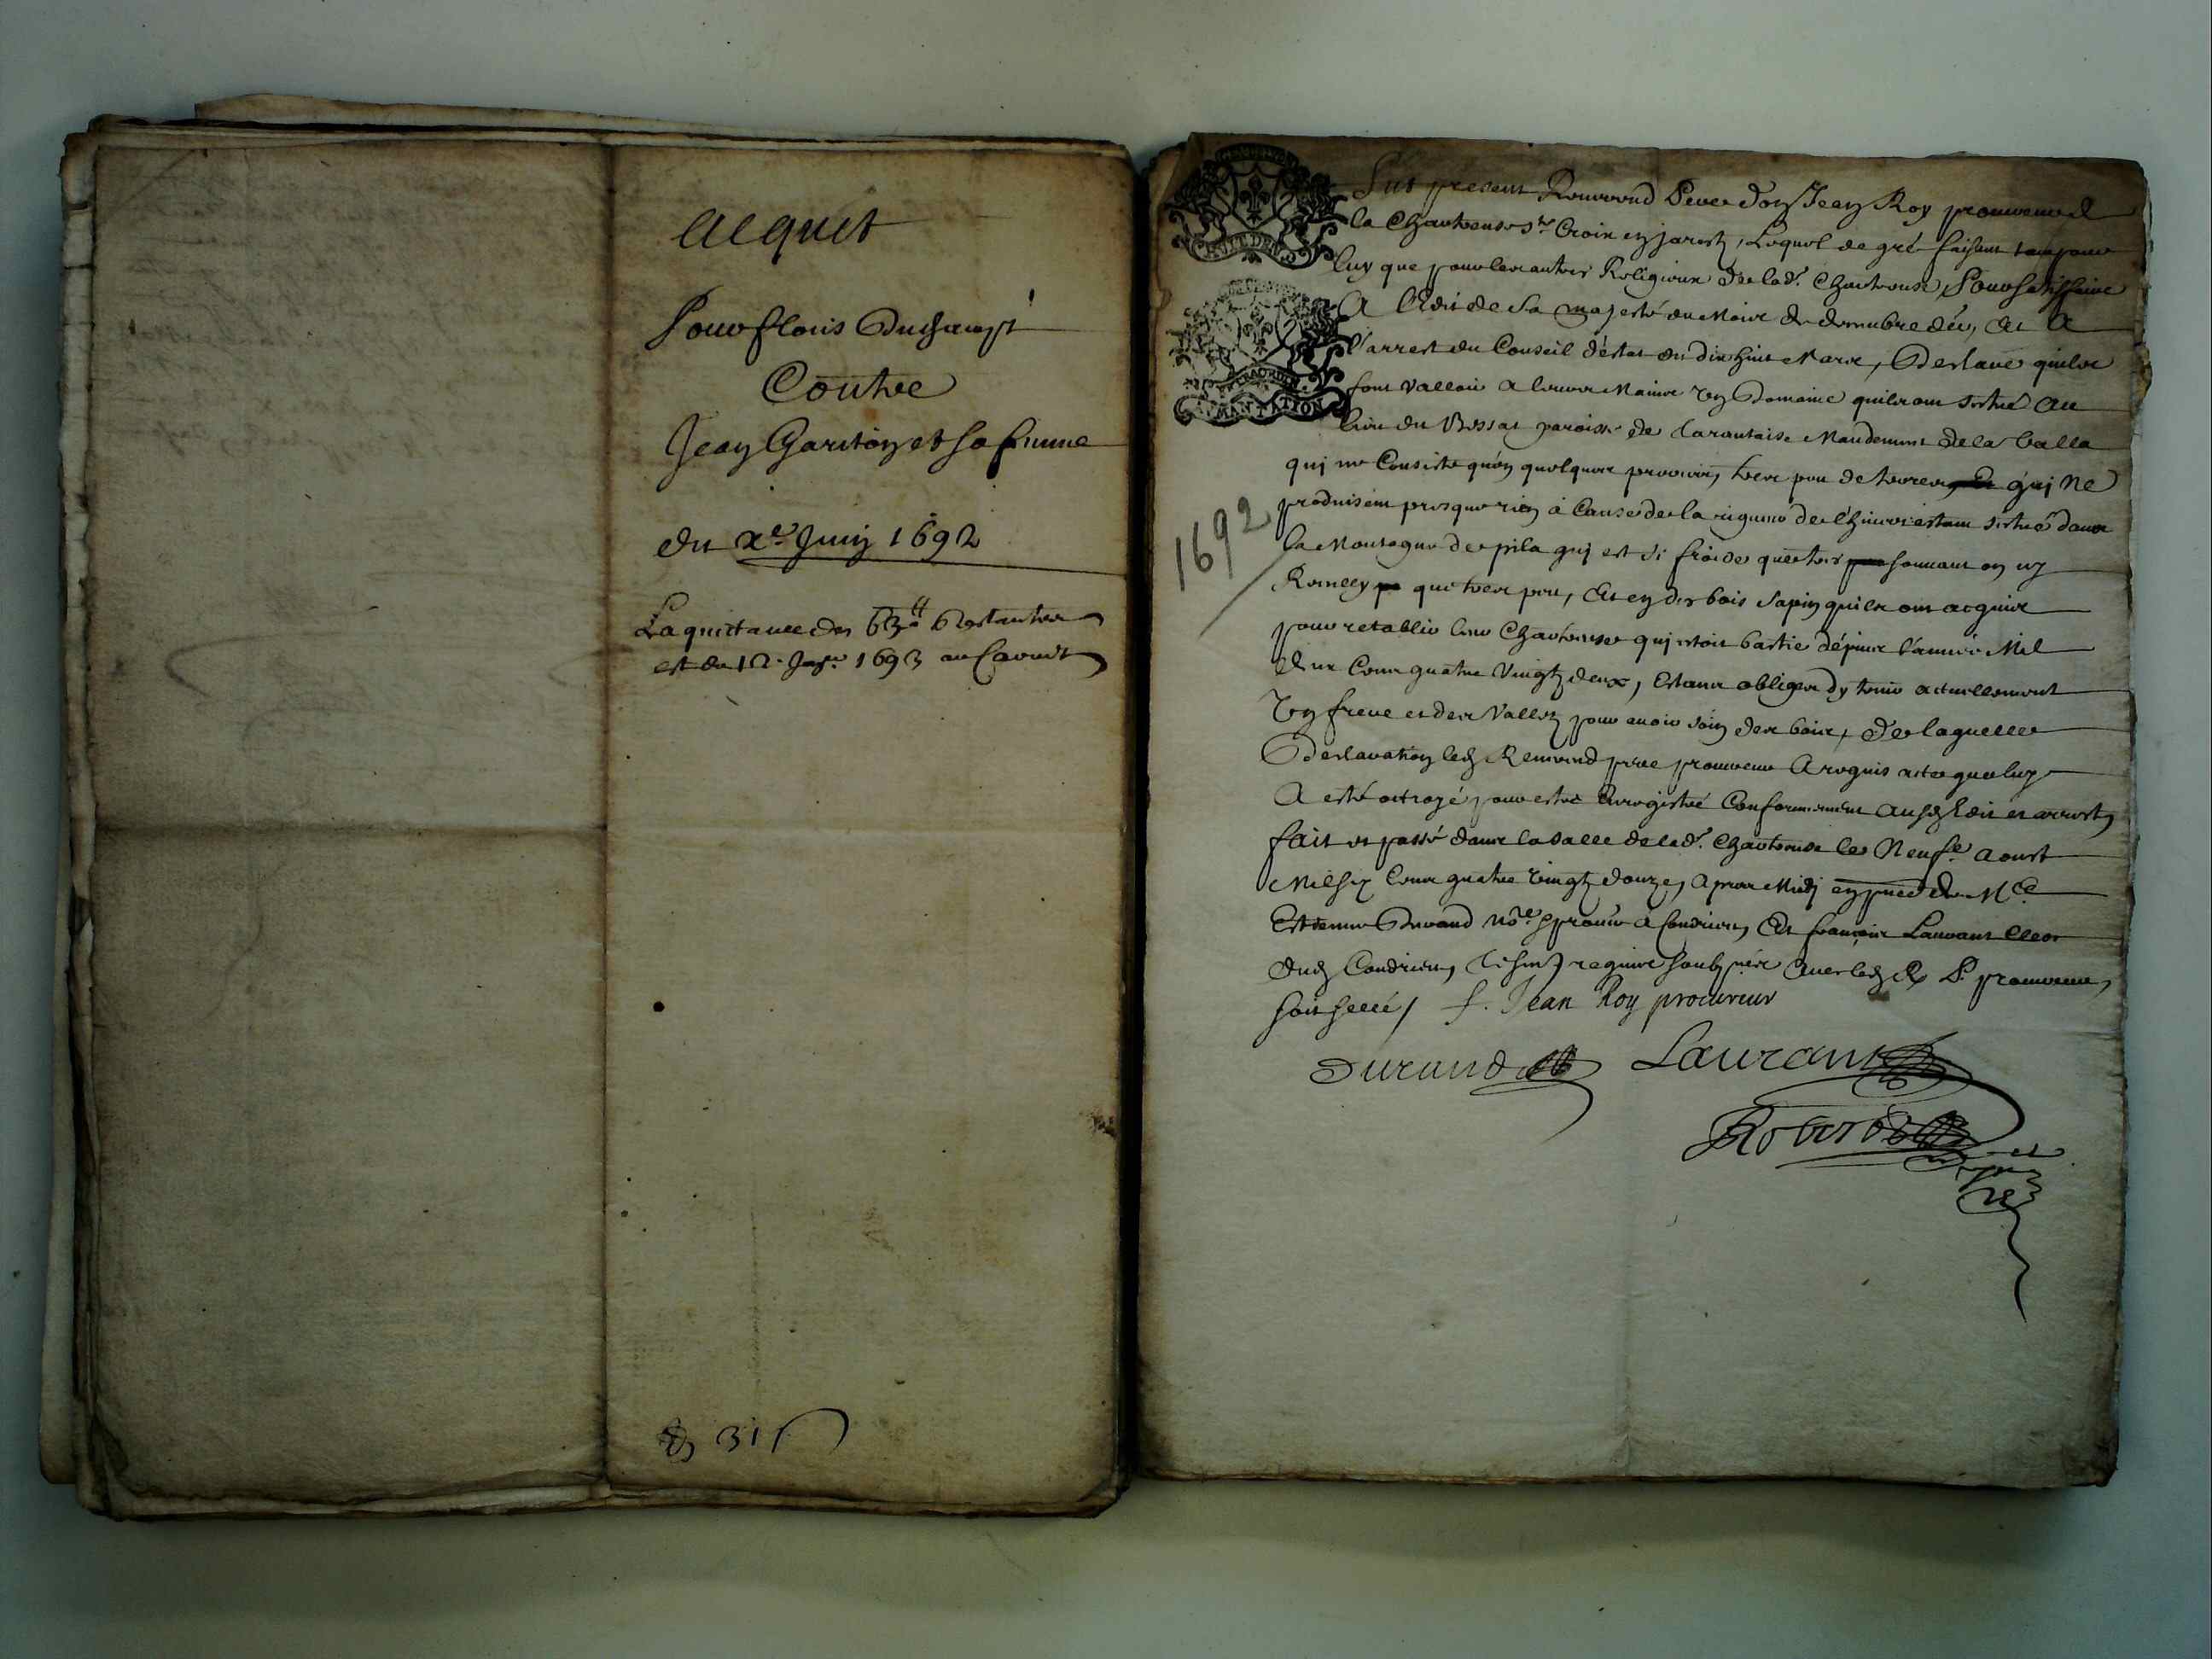 acquit
Pour flouis Duchampt
Contre
Jean Gariton et sa femme
du xe Juin 1692
La quittance des 63 ll Restantes
est du 12 Jer 1693 au Carnet
315
1692
Fut present Reuerend Pere don Jean Roy procureur de
la Chartreuse Ste Croix en jarest, Lequel de gré faisant tan pour
luy que pour les autres Religieux de lad. Chartreuse, Pour satisffaire
A l'Edit de Sa majesté du Mois de decembre der, Et A
l'arrest du Conseil d'éstat du dix huit Mars, Desclare quils
font valloir a leurs Mains un Domaine quils ont situé Au
lieu du Bessat paroisse de tarantaise Mandement de la Valla
qui ne Consiste qu'en quelques prairies, tres peu de terres, qui Ne
produisent presque rien à Cause de la rigueur de l'hiuer estant situé dans
la Montagne de pila qui est si froide que tres souuant on ny
Receuille que tres peu, Et en des bois Sapin quils ont acquis
pour retablir leur Chartreuse qui estoit bastie dépuis l'année Mil
deux Cens quatre Vingtz deux, Estans obligés dy tenir actuellement
un frere et des Vallets pour auoir soin des bois, De laquelle
Desclaration led Reuerend pere procureur A requis acte que luy
A esté octroyé pour estre Enregistré Conformement ausd Edit et arrest,
fait et passé dans la salle de lad. Chartreuse le Neufe aoust
Mil six Cens quatre vingtz douze, apres Midi en pnce de Me
Estienne Durand nore et procur a Condrieu, Et françois Laurans clerc
dud Condrieu, tesmoins requis soubznés Auec led R. P. procureur,
soit scellé / f. Jean Roy procureur
Durand Laurans
Robert